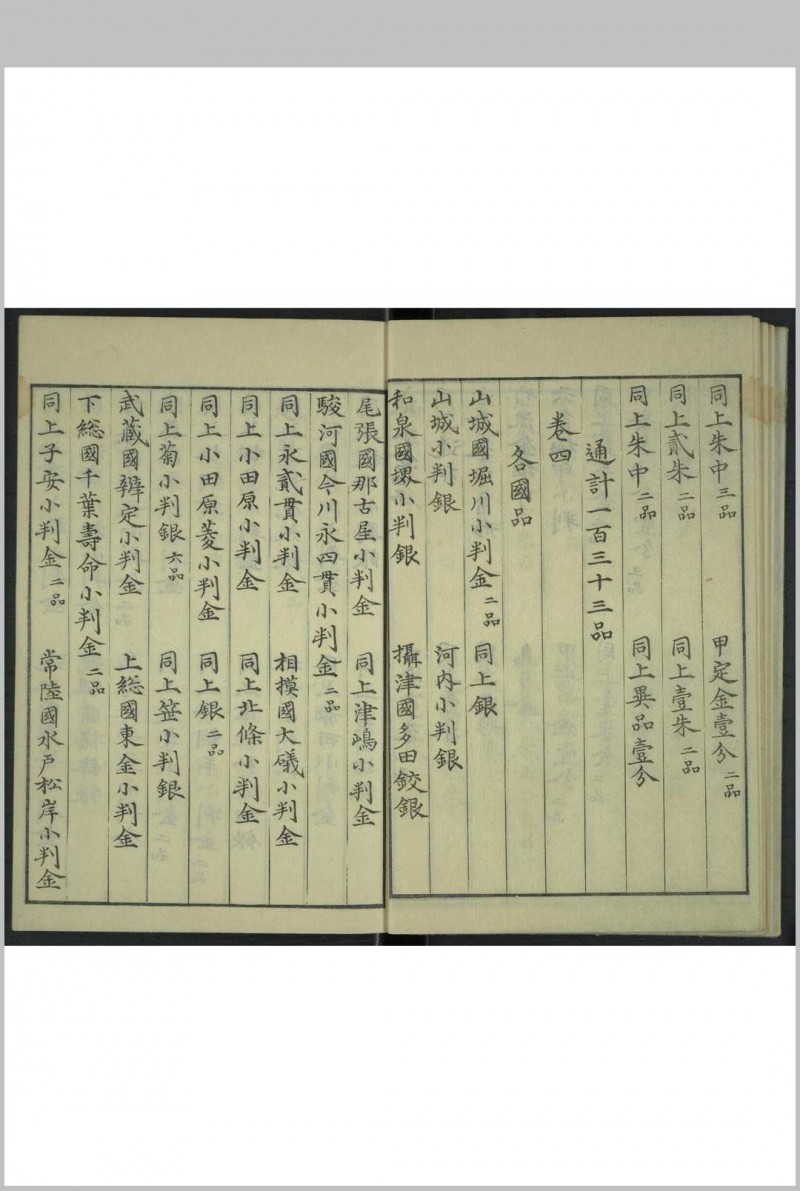 同上朱中三品　甲定金壹分二品
同上貳朱二品　同上壹朱二品
同上朱中二品　同上異品壹分
通計一百三十三品
卷四
各國品
山城國堀川小判金二品　同上銀
山城小判銀　河内小判銀
和泉國堺小判銀　攝津國多田鉸銀
尾張國那古屋小判金　同上津嶋小判金
駿河國今川永四貫小判金二品
同上永貳貫小判金　相摸國大礒小判金
同上小田原小判金　同上北條小判金
同上小田原菱小判金　同上銀二品
同上菊小判銀六品　同上笹小判銀
武藏國辨定小判金　上総國東金小判金
下総國千葉壽命小判金二品
同上子安小判金二品　常陸國水戸松岸小判金